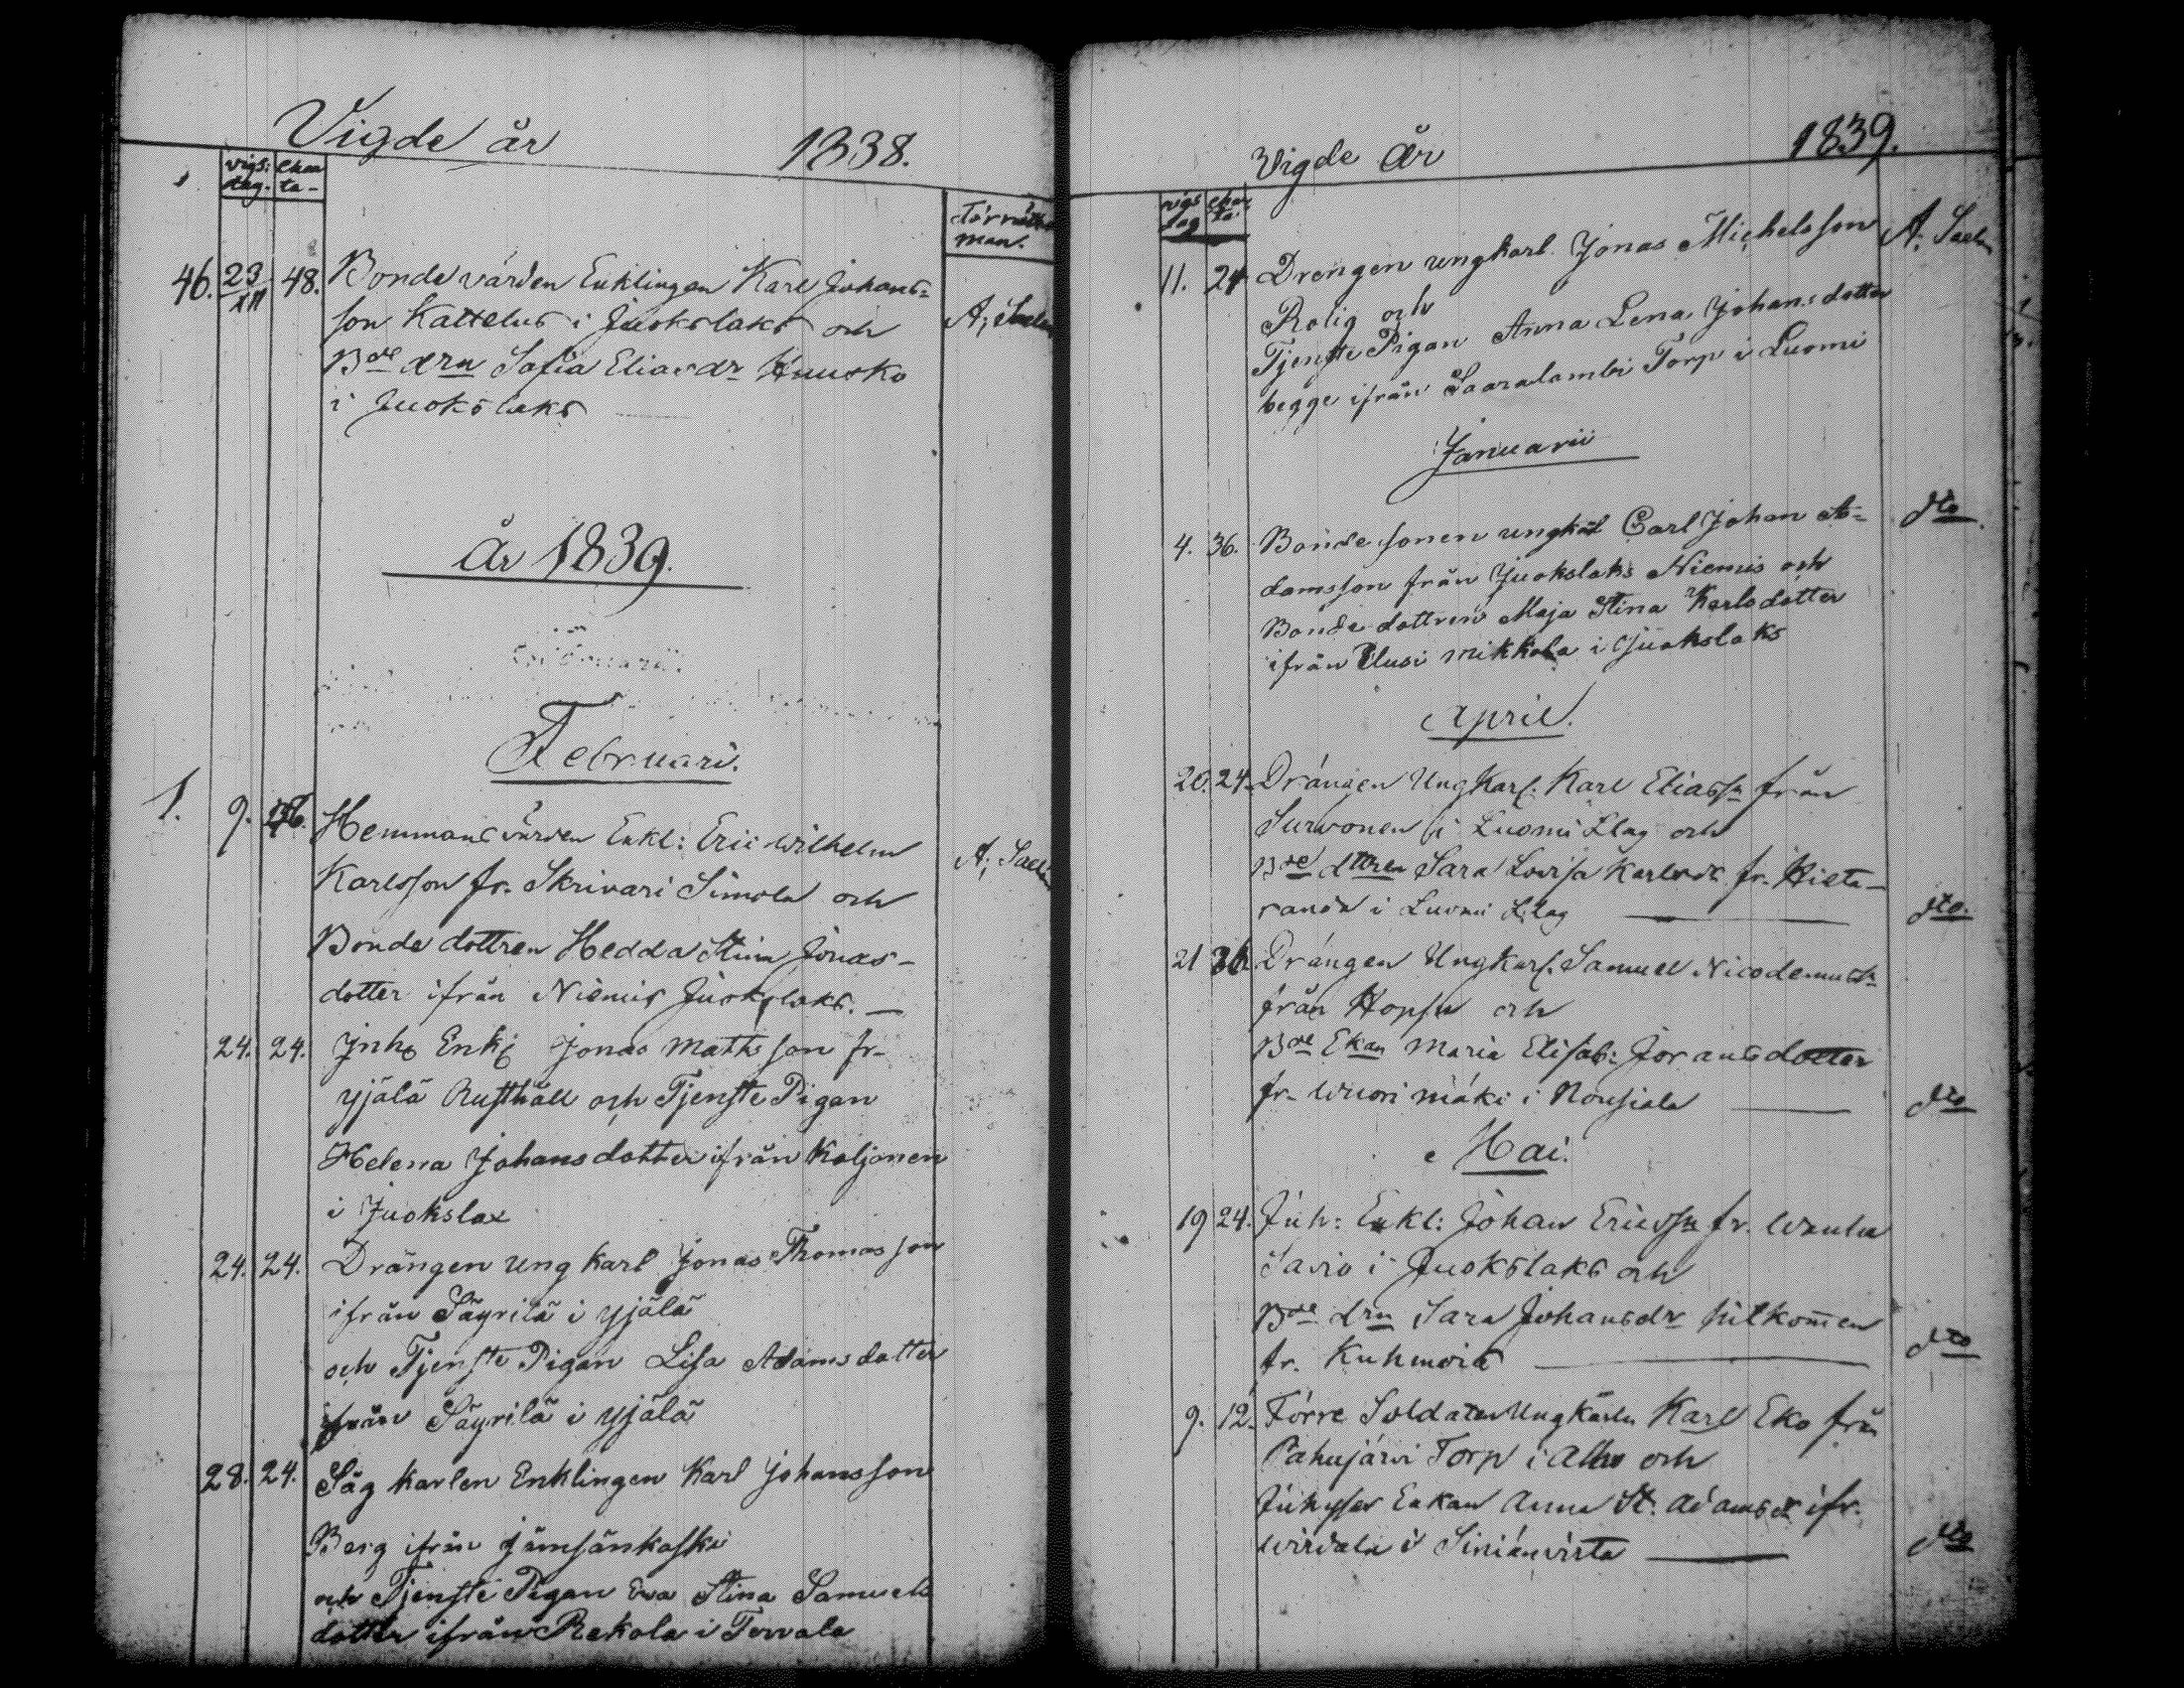 Vigde år 1838.
vigs: dag. Char ta-
Förrätt man.
46. 23/XII 48. Bonde värden Enklingen Karl Johans=
son Kattelus i Juokslaks och
A; Saelan
Bde drn Safia Eliasdr Huusko
i Juokslaks
År 1839.
Februari.
1. 9. 96. Hemmans värden Enkl: Eric Wilhelm
Karlsson fr. Skrivari Simola och
A; Saelan
Bonde dottren Hedda Stina Jonas-
dotter ifrån Niemis Juokslaks.
24. 24. Jnh: Enk: Jonas Mattsson fr-
yjälä Rusthåll och Tjenste Pigan
Helena Johansdotter ifrån Koljonen
i Juokslax
24. 24. Drängen ung karl Jonas Thomasson
ifrån Säyrilä i yjälä
och Tjenste Pigan Lisa Adamsdotter
ifrån Säyrilä i yjälä
28. 24. Såg karlen Enklingen Karl Johansson
Berg ifrån Jämsänkoski
och Tjenste Pigan Ewa Stina Samuels
dotter ifrån Rekola i Tervala
Vigde År 1839.
vigs dag char ta.
11. 24 Drengen ungkarl. Jonas Michelsson A; Saelan
Rolig och
Tjenste Pigan Anna Lena Johansdotter
begge ifrån Saaralambi Torp i Luomi
Januarii
4. 36. Bonde sonen ungkarl Carl Johan A= dto
damsson från Juokslaks Niemis och
Bonde dottren Maja Stina Karlsdotter
ifrån Uusi mikkola i Juokslaks
April.
20. 24. Drängen Ungkarl. Karl Eliassn från
Survonen i Luomi Llag och
Bde dttren Sara Lovisa Karlsdr fr. Hieta-
randa i Luomi Llag dto.
21 36 Drängen Ungkarl. Samuel Nicodemussn
från Hopsu och
Bde Ekan Maria Elisab: Joransdotter
fr- Wuori mäki i Rousiala dto
Mai.
19 24. Jnh: Enkl: Johan Ericssn fr. Wanha
Savio i Juokslaks och
Bde drn Sara Johansdr
fr. Kuhmois dto
9. 12. Förre Soldaten Ungkarln Karl Eko från
Pahujärvi Torp i Alho och
Jnhyses Enkan Anna St. Adamsdr ifr.
Wirdala i Siniänvirta dto